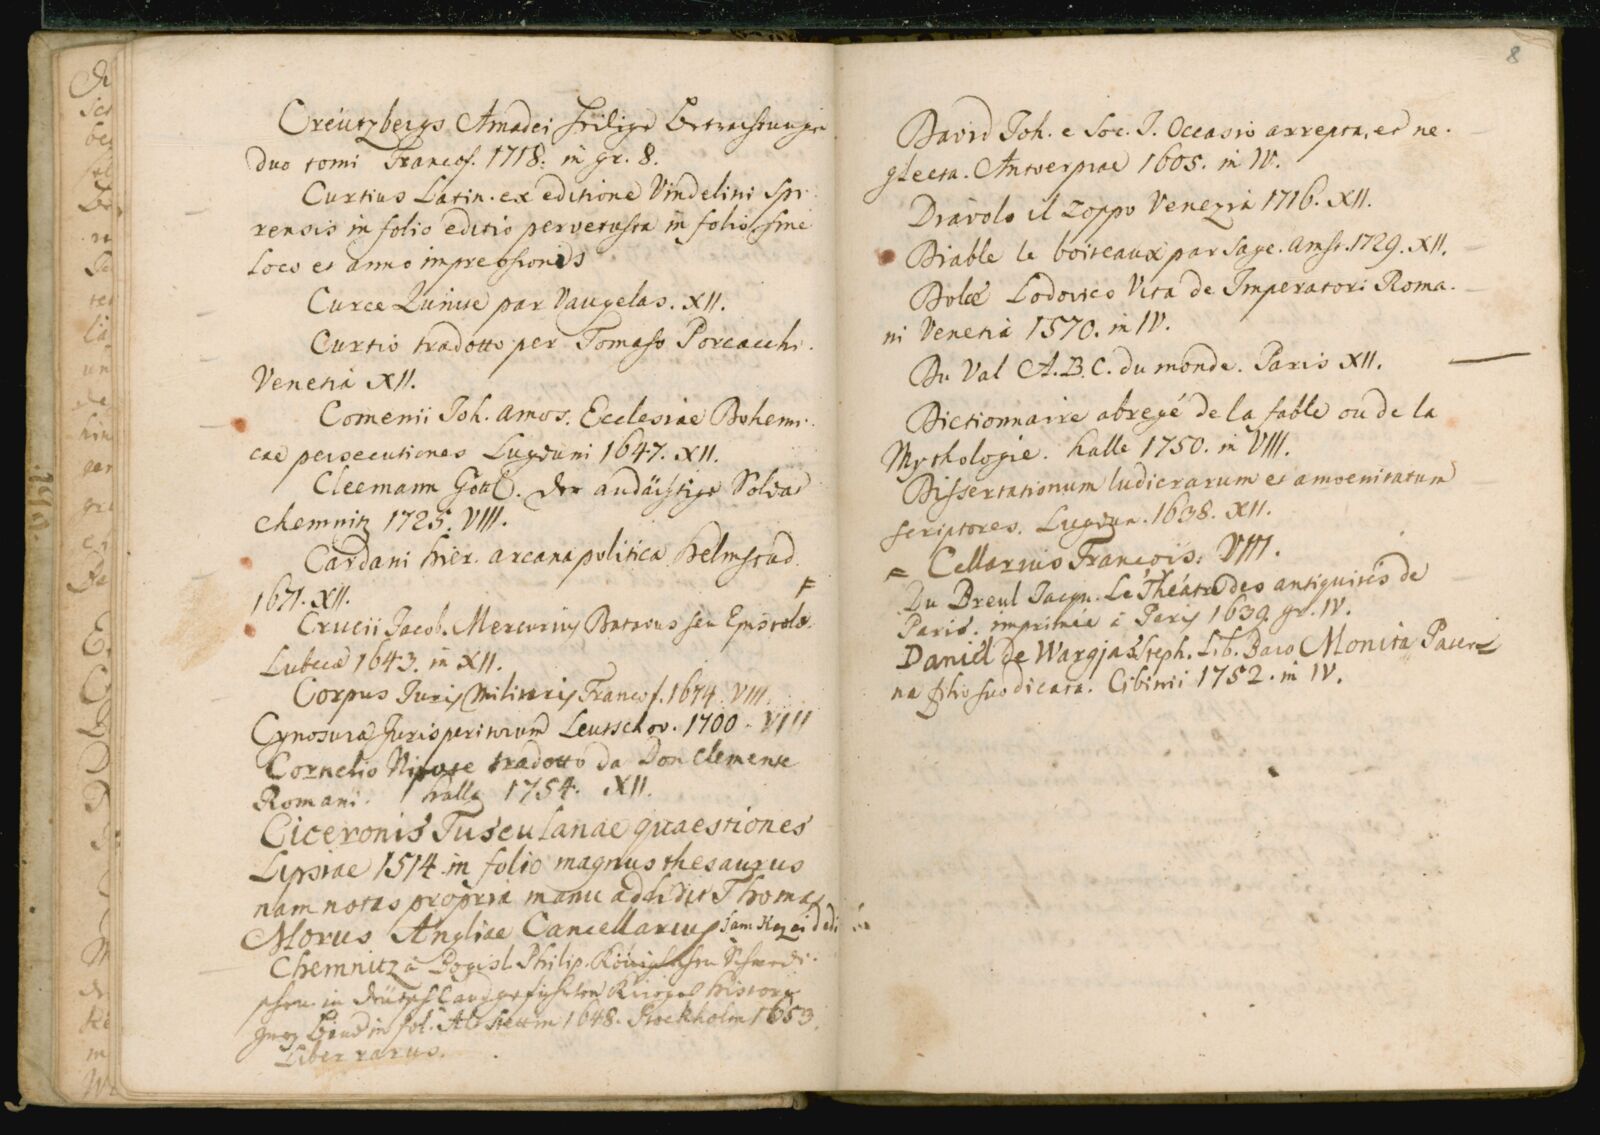 Creutzbergs Amadei heilige Betrachtungen
duo tomi Francof. 1718. in gr. 8.
Curtius Latin. ex editione Vindelini Spi
rensis in folio editio pervetusta in folio sine
loco et anno impressionis
Curce Quinte par Vaugelas. XII.
Curtio tradotto per Tomaso Porcacchi.
Venetia XII.
Comenii Joh. Amos. Ecclesiae Bohemi.
cae persecutiones Lugduni 1647. XII.
Cleemann Gottl. der andächtige Soldat
Chemnitz 1725. VIII.
Cardani Hier. arcana politica Helmstad.
1671. XII.
Crucii Jacob. Mercurius Batavus seu Epistolæ.
Lubecæ 1643. in XII.
Corpus Juris Militaris Francof. 1674. VIII.
Cynosura Jurisperitorum Leutschov. 1700. VIII
Cornelio Nipote tradotto da Don Clemente
Romani. Halle 1754. XII.
Ciceronis Tusculanae quaestiones
Lipsiae 1514. in folio magnus thesaurus
nam notas propria manu addidit Thomas
Morus Angliae Cancellarius
Chemnitz à Bogisl. Philip. Königlichen Schwedi.
schen in Deutschland geführten Krieges Historie
zwey Bände in fol. Alt Stettin 1648. Stockholm 1653.
Liber rarus.
8
David Joh. e Soc. J. Occasio arrepta, et ne.
glecta. Antverpiae 1605. in IV.
Diavolo il Zoppo Venezia 1716. XII.
Diable le boiteaux par Sage. Amst. 1729. XII.
Dolce Lodovico Vita de Imperatori Roma.
ni Venetia 1570. in IV.
Du Val A.B.C. du monde. Paris XII.
Dictionnaire abregé de la fable ou de la
Mythologie. Halle 1750. in VIII.
Dissertationum ludicrarum et amoenitatum
scriptores. Lugdun. 1638. XII.
Cellarius François. VIII.
Du Breul Jacqu. Le Théatre des antiquités de
Paris. imprimée à Paris 1639. gr. IV.
Daniel de Wargjas Steph. Lib. Baro Monita Pater
na filio suo dicata. Cibinii 1752. in IV.